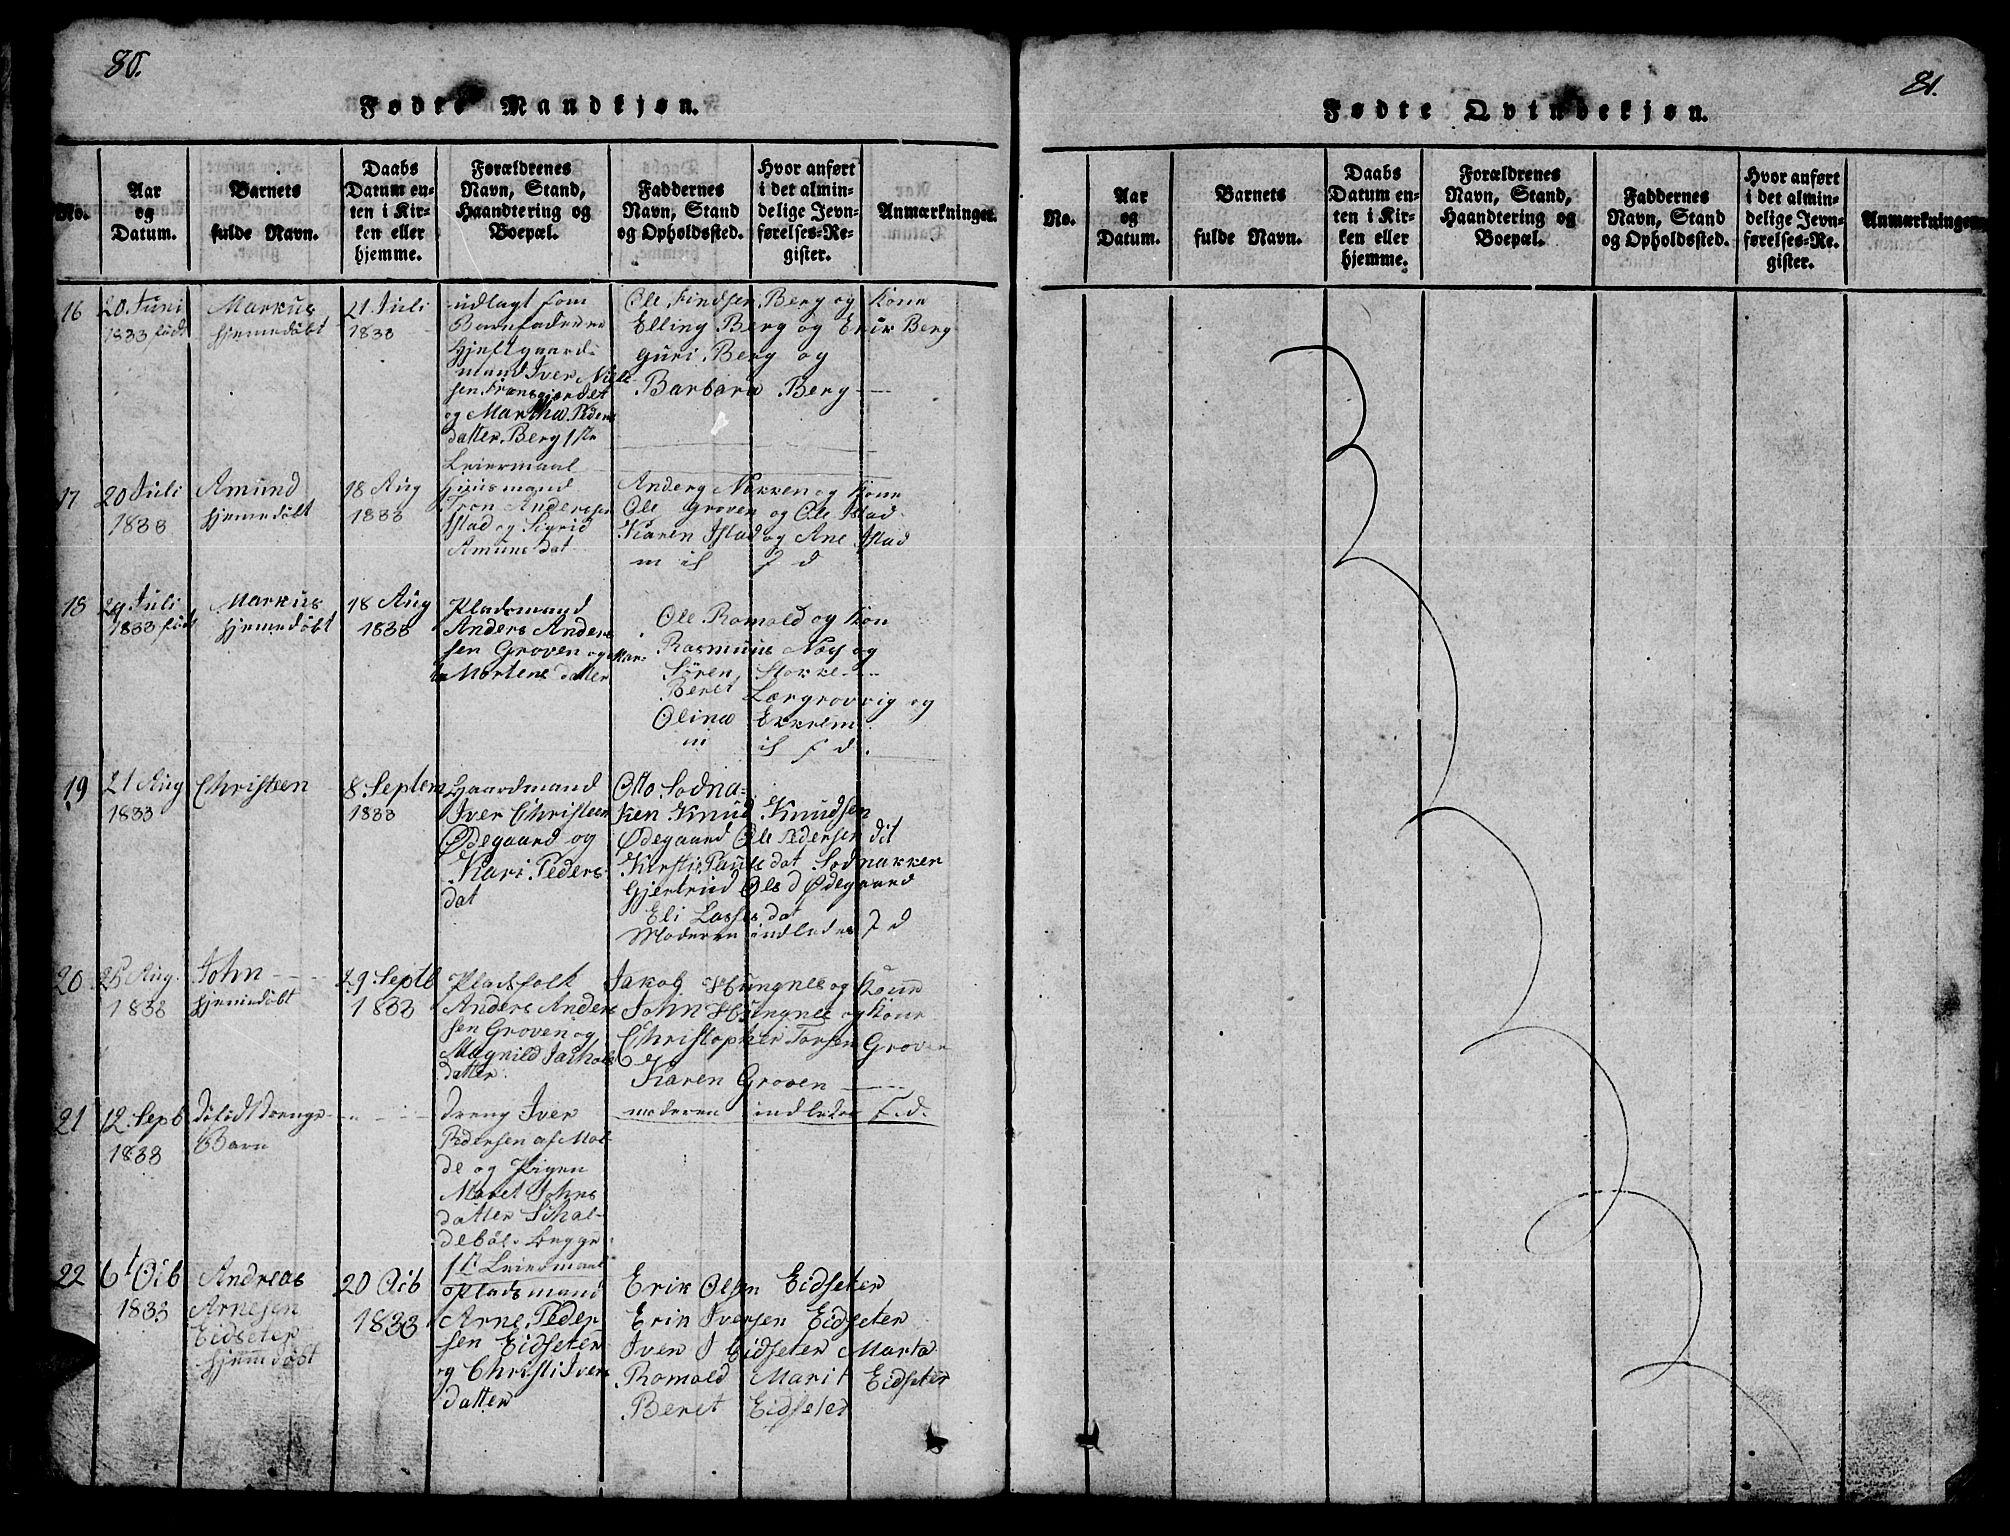 80.
Fødte Mandkjøn.
No.
Aar
og
Datum.
Barnets
fulde Navn.
Daabs
Datum en-
ten i Kir-
ken eller
hjemme.
Forældrenes
Navn, Stand,
Haandtering og
Boepæl.
Faddernes
Navn, Stand
og Opholdssted.
Hvor anført
i det almin-
delige Jevn-
førelses-Re-
gister.
Anmærkninger.
16
20 Juni
1833 født
Markus
hjemedøbt
21 Juli
1833
udlagt som
Barnfader er
gaard-
mand Iver Niels
sen
og Martha Peders
datter Berg 1ste
Leiermaal
Ole Findsen Berg og Kone
Elling Berg og Erik Berg
guri Berg og
Barbara Berg
17
20 Juli
1833
Amund
hjemedøbt
18 Aug
1833
Huusmand
Tron Andersen
Istad og Sigrid
Amuns dat
Anders Nakken og Kone
Ole Groven og Ole Istad
Karen Istad og Ane Istad
m il f d
18
29 Juli
1833 født
Markus
hjemedøbt
18 Aug
1833
Pladsmand
Anders Anders
sen Groven og Mar-
ta Mortens datter
Ole Romold og Kon
Rasmus Næs og
Søren Stokke
Beret Lærgrovvig og
Olina Ekrem
m il f d.
19
21 Aug
1833
Christeen
8 Septem
1833
Gaardmand
Iver Christeen
Ødegaard og
Kari Peders-
dat
Otto Sodna-
ken Knud Knudsen
Ødegaard Ole Pedersen dit
Kirsti Pauls dat Sodnakken
Gjertrud Ols d Ødegaard
Eli Lasses dat
Moderen indledes f d
20
25 Aug.
1833
John
hjemedøbt
29 Septb
1833
Pladsfolk
Anders Anders
sen Groven og
Magnild
datter
Jakob Hungnes og Kone
John Hungnes og Kone
Christopher Torsen Groven
Karen Groven
21
12 Sepb
1833
dødfødt drenge
Barn
dreng Iver
Pedersen af Mol-
de og Pigen
Maret Johns
datter Skal-
debøl. begge
1st Leiermaal
moderen indledes f.d.
22
6t Octb
1833
Andreas
Arnesen
Eidseter
hjemmedøbt
20 Octb
1833
Pladsmand
Arne Peder
sen Eidseter
og Christi Ivers
datter
Erik Olsen Eidseter
Erik Iversen Eidseter
Iver I Eidseter Marta
Romold Marit Eidseter
Beret Eidseter
81.
Fødte Qvindekjøn.
No.
Aar
og
Datum.
Barnets
fulde Navn.
Daabs
Datum en-
ten i Kir-
ken eller
hjemme.
Forældrenes
Navn, Stand,
Haandtering og
Boepæl.
Faddernes
Navn, Stand
og Opholdssted.
Hvor anført
i det almin-
delige Jevn-
førelses-Re-
gister.
Anmærkninger.